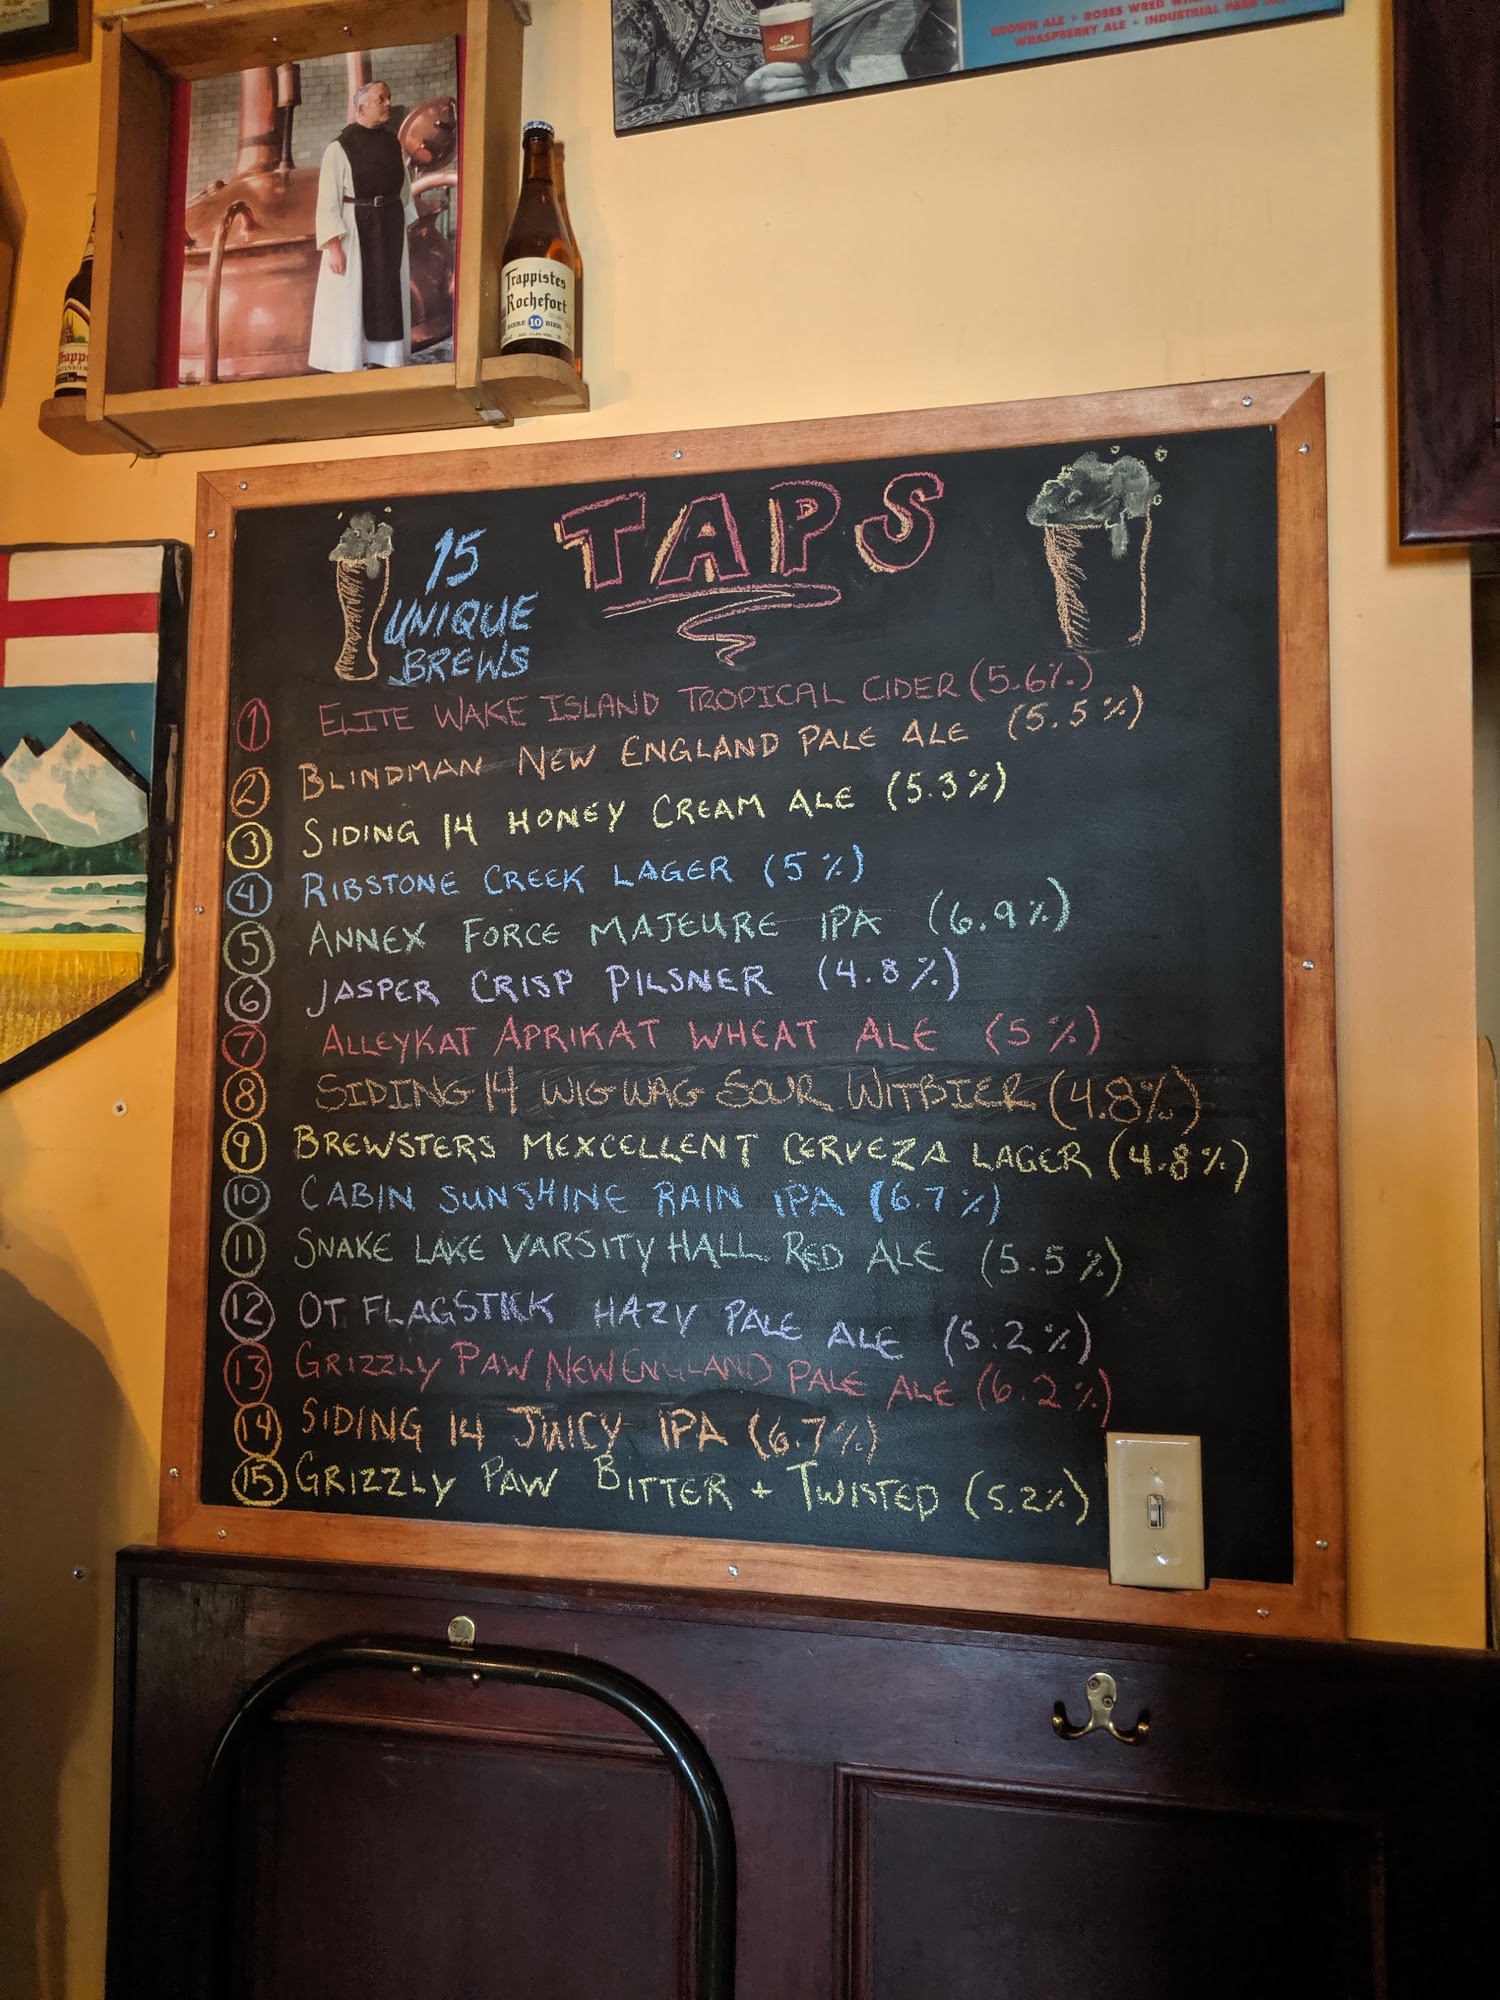 BROWN ALE • ROSES WRED
WRASPBERRY ALE • INDUSTRIAL PARK
Trappistes
Rochefort
BIERE 10 BIER
Trapp
15
UNIQUE
BREWS
TAPS
1 ELITE WAKE ISLAND TROPICAL CIDER (5.6%)
2 BLINDMAN NEW ENGLAND PALE ALE (5.5%)
3 SIDING 14 HONEY CREAM ALE (5.3%)
4 RIBSTONE CREEK LAGER (5%)
5 ANNEX FORCE MAJEURE IPA (6.9%)
6 JASPER CRISP PILSNER (4.8%)
7 ALLEYKAT APRIKAT WHEAT ALE (5%)
8 SIDING 14 WIG WAG SOUR WITBIER (4.8%)
9 BREWSTERS MEXCELLENT CERVEZA LAGER (4.8%)
10 CABIN SUNSHINE RAIN IPA (6.7%)
11 SNAKE LAKE VARSITY HALL RED ALE (5.5%)
12 OT FLAGSTICK HAZY PALE ALE (5.2%)
13 GRIZZLY PAW NEW ENGLAND PALE ALE (6.2%)
14 SIDING 14 JUICY IPA (6.7%)
15 GRIZZLY PAW BITTER + TWISTED (5.2%)